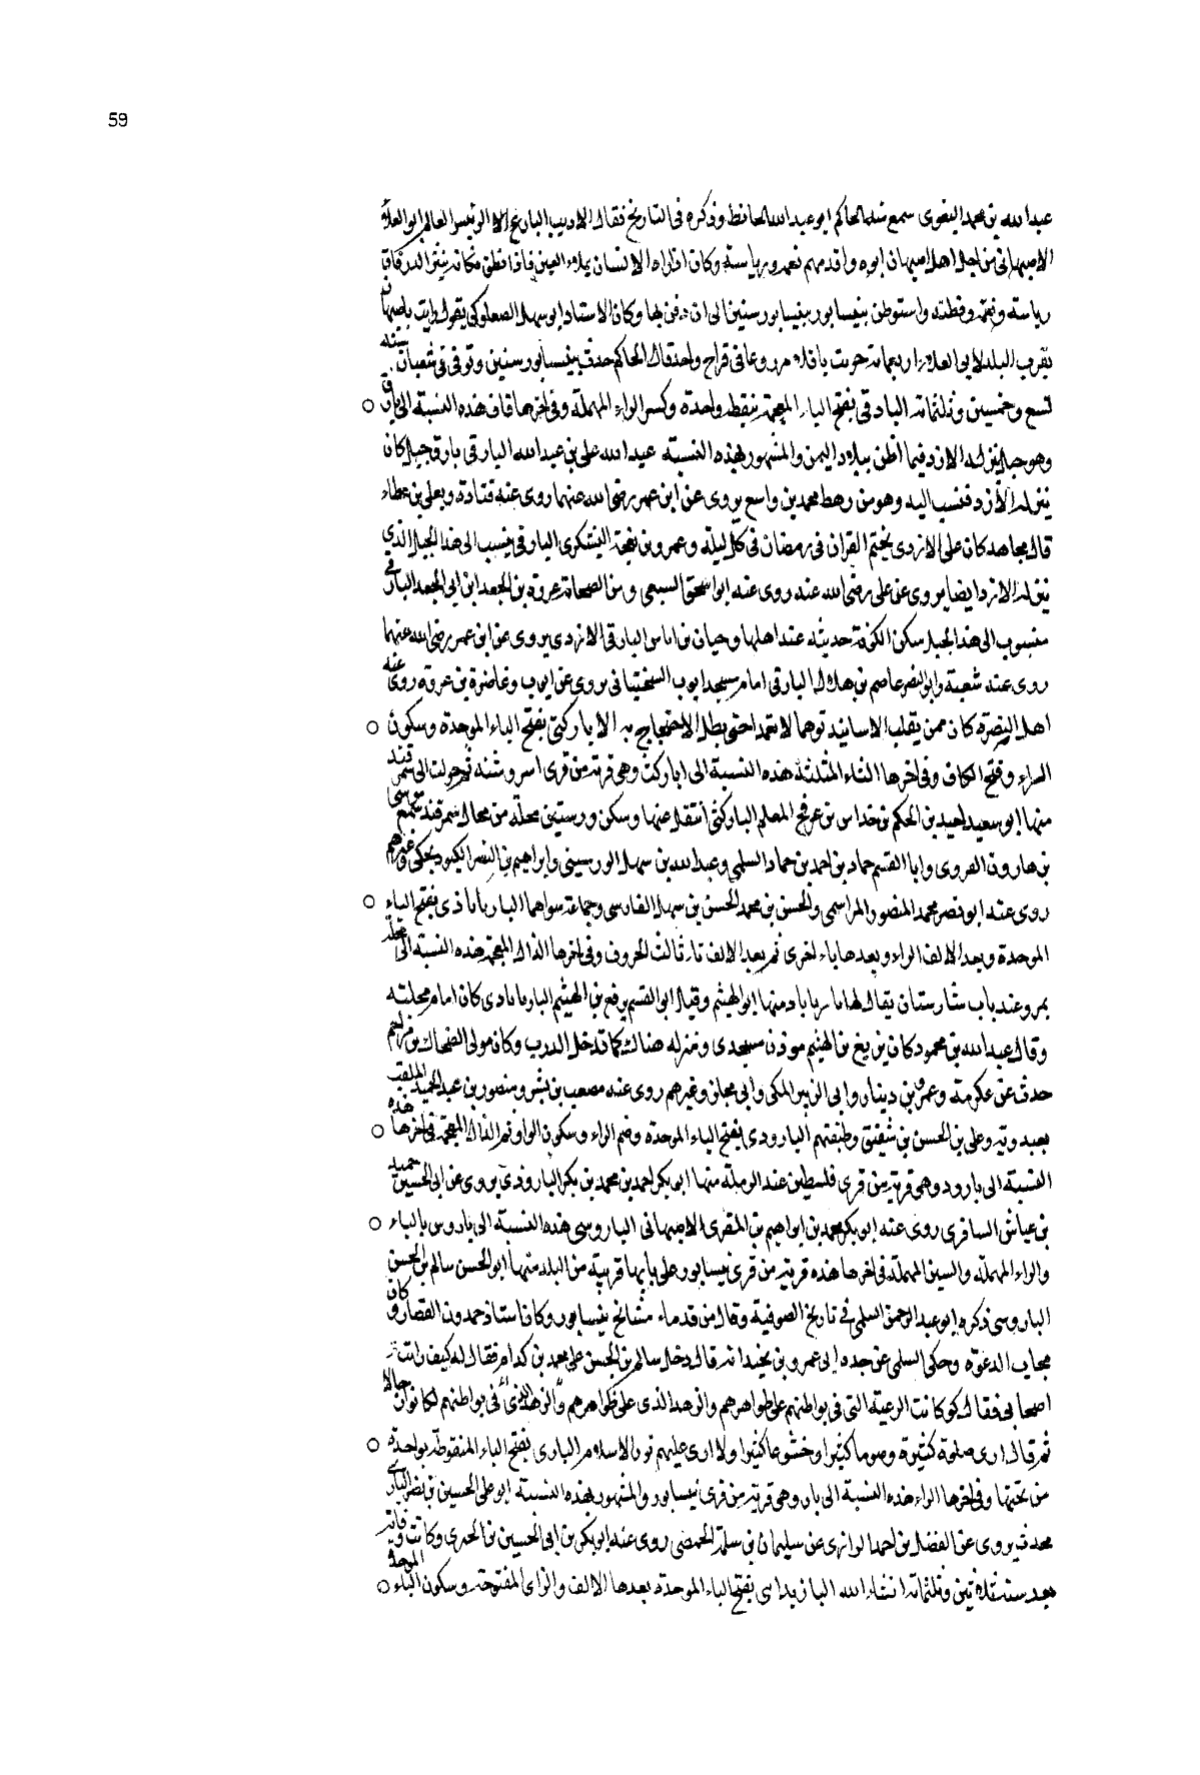 59
عبدالله بن محمد البغوى سمع منه الحاكم ابو عبدالله الحافظ وذكره فى التاريخ فقال الاديب البارع الرئيس العالم ابو العلاء
الاصبهانى من اجل اهل اصبهان ابوه واقدمهم نعمه ورياسة وكان اذا راه الانسان يملاء العين فاذا نطق فكانه ينثر الدر فاق
رياسة ونعمه وفطنه واستوطن بنيسابور بنيسابور سنين الى ان دفن بها وكان الاستاد ابو سهل الصعلوكى يقول رايت باصبهان
بقرب البلد لابى العلاء اربعمائة جريب باقلاء مزروعا فى قراح واحد قال الحاكم حدث بنيسابور سنين وتوفى فى شعبان سنه
تسع وخمسين وثلثمائه البارقى بفتح الباء المعجمة بنقطه واحدة وكسر الراء المهملة وفى اخرها قاف هذه النسبة الى بارق
وهو جبل ينزله الازد فيما اظن ببلاد اليمن والمشهور بهذه النسبة عبدالله على بن عبدالله البارقى بارق جبل كان
ينزله الأزد فنسب اليه وهو من رهط محمد بن واسع يروى عن ابن عمر رضى الله عنهما روى عنه قتادة ويعلى بن عطاء
قال مجاهد كان على الازدى يختم القران فى رمضان فى كل ليلة وعمرو بن نعجة اليشكرى البارقى ينسب الى هذا الجبل الذي
ينزله الازد ايضا يروى عن على رضى الله عنه روى عنه ابو اسحق السبيعى ومن الصحابة عروة بن الجعد ابن ابى الجعد البارقى
منسوب الى هذا الجبل سكن الكوفة حديثه عند اهلها وحيان بن اياس البارقى الازدى يروى عن ابن عمر رضى الله عنهما
روى عنه شعبة وابو النضر عاصم بن هلال البارقى امام مسجد ايوب السختيانى يروى عن ايوب وغاضرة بن عروة روى عنه
اهل البصرة كان ممن يقلب الاسانيد توهما لا تعمدا حتى بطل الاحتجاج به الاباركثى بفتح الباء الموحدة وسكون
الراء وفتح الكاف وفى اخرها الثاء المثلثة هذه النسبة الى اباركث وهى قرية من قرى اسروشنه ثم حولت الى سمرقند
منها ابو سعيد احيد بن الحكم بن خداس بن عرفج المعلم الباركثى انتقل عنها وسكن ورستين محلة من محال سمرقند سمع موسى
بن هارون الفروى وابا القسم حماد بن احمد بن حماد السلمى وعبدالله بن سهل الورسينى وابراهيم بن النضر الكبود نجكى وغيرهم
روى عنه ابو نصر محمد المنصور المراسمى والحسن بن محمد الحسن بن سهل الفارسى وجماعة سواهما البارباباذى بفتح الباء
الموحدة وبعد الالف الراء وبعدها باء اخرى ثم بعد الالف ثالث الحروف وفى اخرها الذال المعجمة هذه النسبة الى محلة
بمرو عند باب شارستان يقال لها بارباباد منها ابو الهيثم وقيل ابو القسم بزيع بن الهيثم البارباباذى كان امام محلته
وقال عبدالله بن محمود كان بزيع بن الهيثم موذن مسجدى ومنزله هناك كما تدخل الدرب وكان مولى الضحاك بن مزاحم
حدث عن عكرمة وعمرو بن دينار وابى الزبير المكى وابى مجلز وغيرهم روى عنه مصعب بن بشر ومنصور بن عبد الحميد الملقب
بعبدويه وعلى بن الحسن بن شقيق وطبقتهم البارودى بفتح الباء الموحدة وضم الراء وسكون الواو ثم الذال المعجمة فى اخرها هذه
النسبة الى بارود وهى قرية من قرى فلسطين عند الرملة منها ابو بكر احمد بن محمد بن بكر البارودى يروى عن ابى الحسين حميد
بن عياش السافرى روى عنه ابو بكر محمد بن ابراهيم بن المقرى الاصبهانى الباروسى هذه النسبة الى باروس بالباء
والراء المهملة والسين المهملة فى اخرها هذه قرية من قرى نيسابور على بابها قريبة من البلد منها ابو الحسن سالم بن الحسن
الباروسى ذكره ابو عبد الرحمن السلمى فى تاريخ الصوفية وقال من قدماء مشائخ نيسابور وكان استاذ حمدون القصار وكان
مجاب الدعوة وحكى السلمى عن جده ابى عمرو بن نجيد انه قال دخل سالم بن الحسن على محمد بن كرام فقال له كيف رايت
اصحابى فقال لو كانت الرعبة التى فى بواطنهم على ظواهرهم والزهد الذى على ظواهرهم فى بواطنهم لكانوا رجالا
ثم قال ارى صلوة كثيرة وصوما كثيرا وخشوعا كثيرا ولا ارى عليهم نور الاسلام البارى بفتح الباء المنقوطة بواحدة
من تحتها وفى اخرها الراء هذه النسبة الى بار وهى قرية من قرى نيسابور والمشهور بهذه النسبة ابو على الحسين بن نصر البارى
محدث يروى عن الفضل بن احمد الرازى عن سليمان بن سلمة الحمصى روى عنه ابو بكر بن ابى الحسين بن الحيرى وكانت وفاته
بعد سنة ثلاثين وثلثمائة انشاء الله البازبداى بفتح الباء الموحدة بعدها الالف والزاى المفتوحة وسكون الباء الموحدة